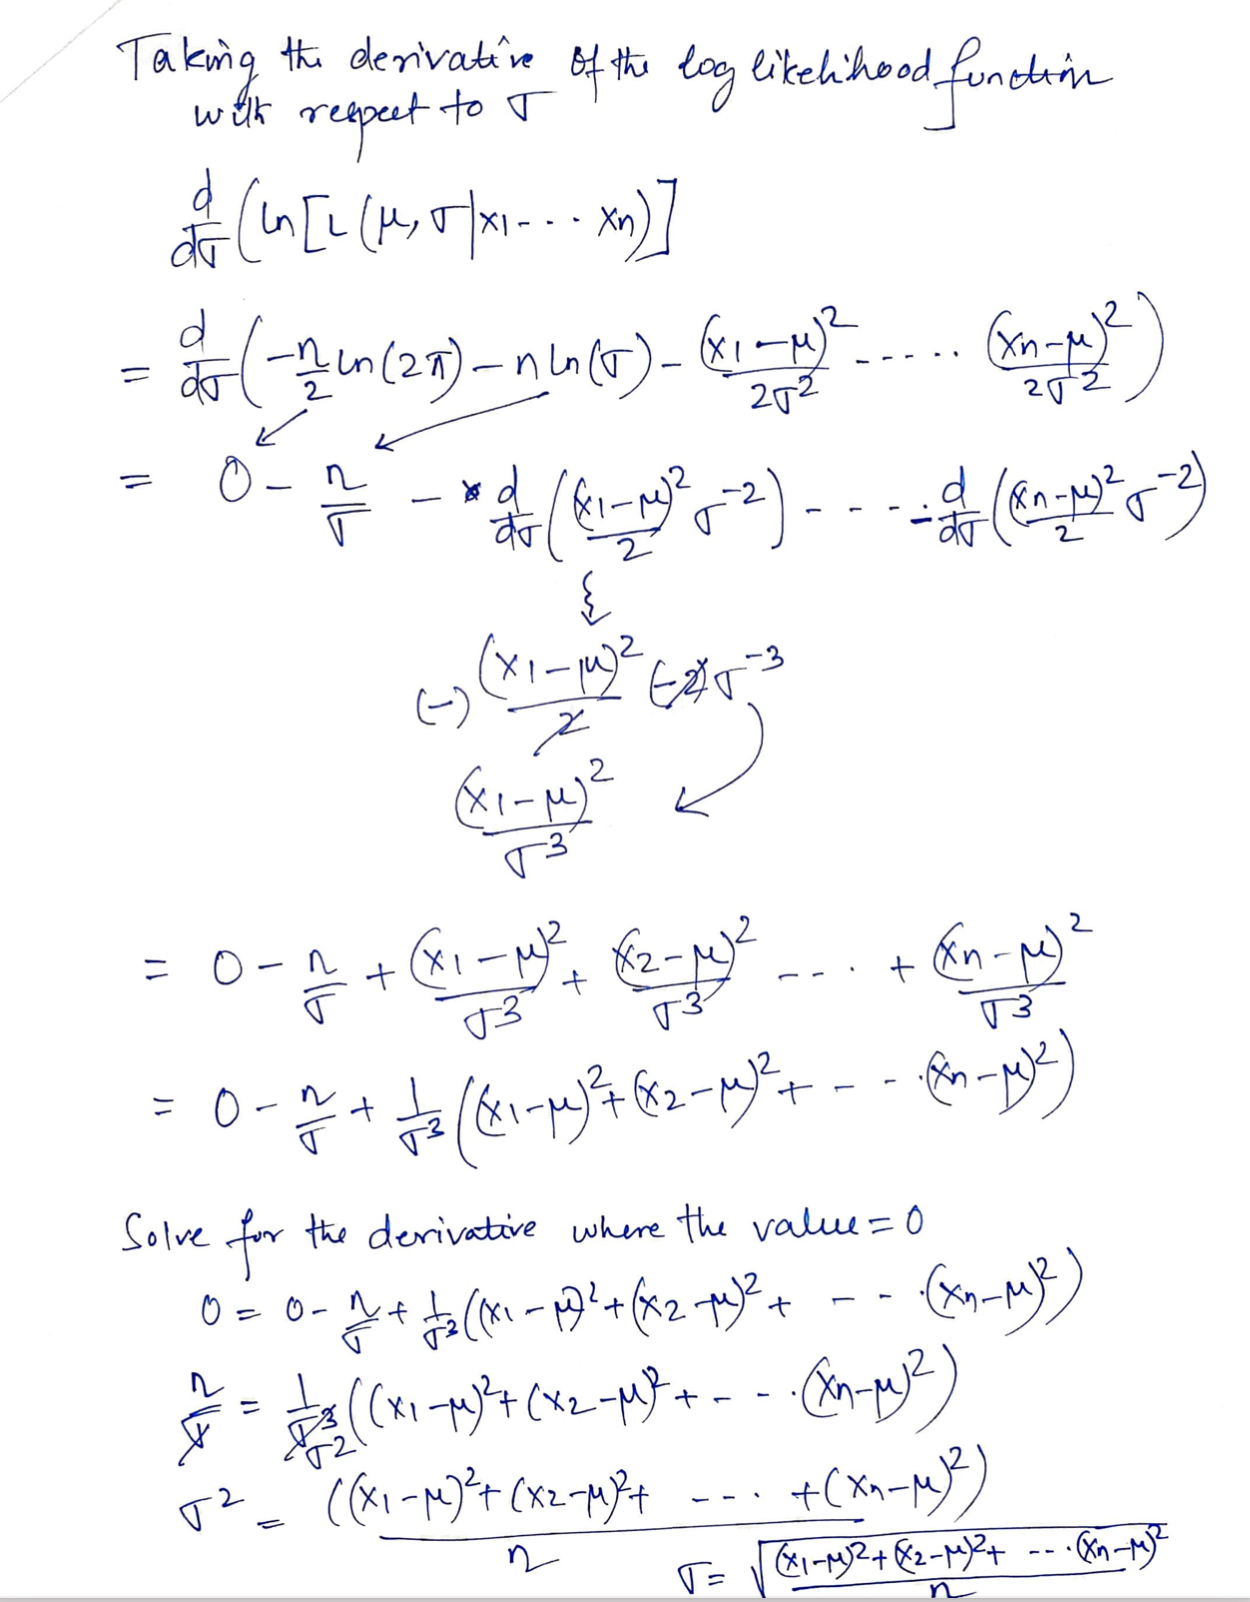 Taking the derivative of the log likelihood function
with respect to σ
d/dσ (ln[L(μ, σ|x1--.. xn)]
= d/dσ (-n/2 ln(2π) - n ln(σ) - (x1-μ)²/2σ² ----.. (xn-μ)²/2σ²)
= 0 - n/σ - d/dσ ((x1-μ)²/2 σ⁻²) - - - - d/dσ ((xn-μ)²/2 σ⁻²)
(-) (x1-μ)²/2 (-2)σ⁻³
(x1-μ)²/σ³
= 0 - n/σ + (x1-μ)²/σ³ + (x2-μ)²/σ³ --.. + (xn-μ)²/σ³
= 0 - n/σ + 1/σ³ ((x1-μ)² + (x2-μ)² + - - .(xn-μ)²)
Solve for the derivative where the value = 0
0 = 0 - n/σ + 1/σ³ ((x1-μ)² + (x2-μ)² + - - .(xn-μ)²)
n/σ = 1/σ³ σ² ((x1-μ)² + (x2-μ)² + - - .(xn-μ)²)
σ² = ((x1-μ)² + (x2-μ)² + --.. + (xn-μ)²)/n
σ = √((x1-μ)² + (x2-μ)² + --..(xn-μ)²/n)